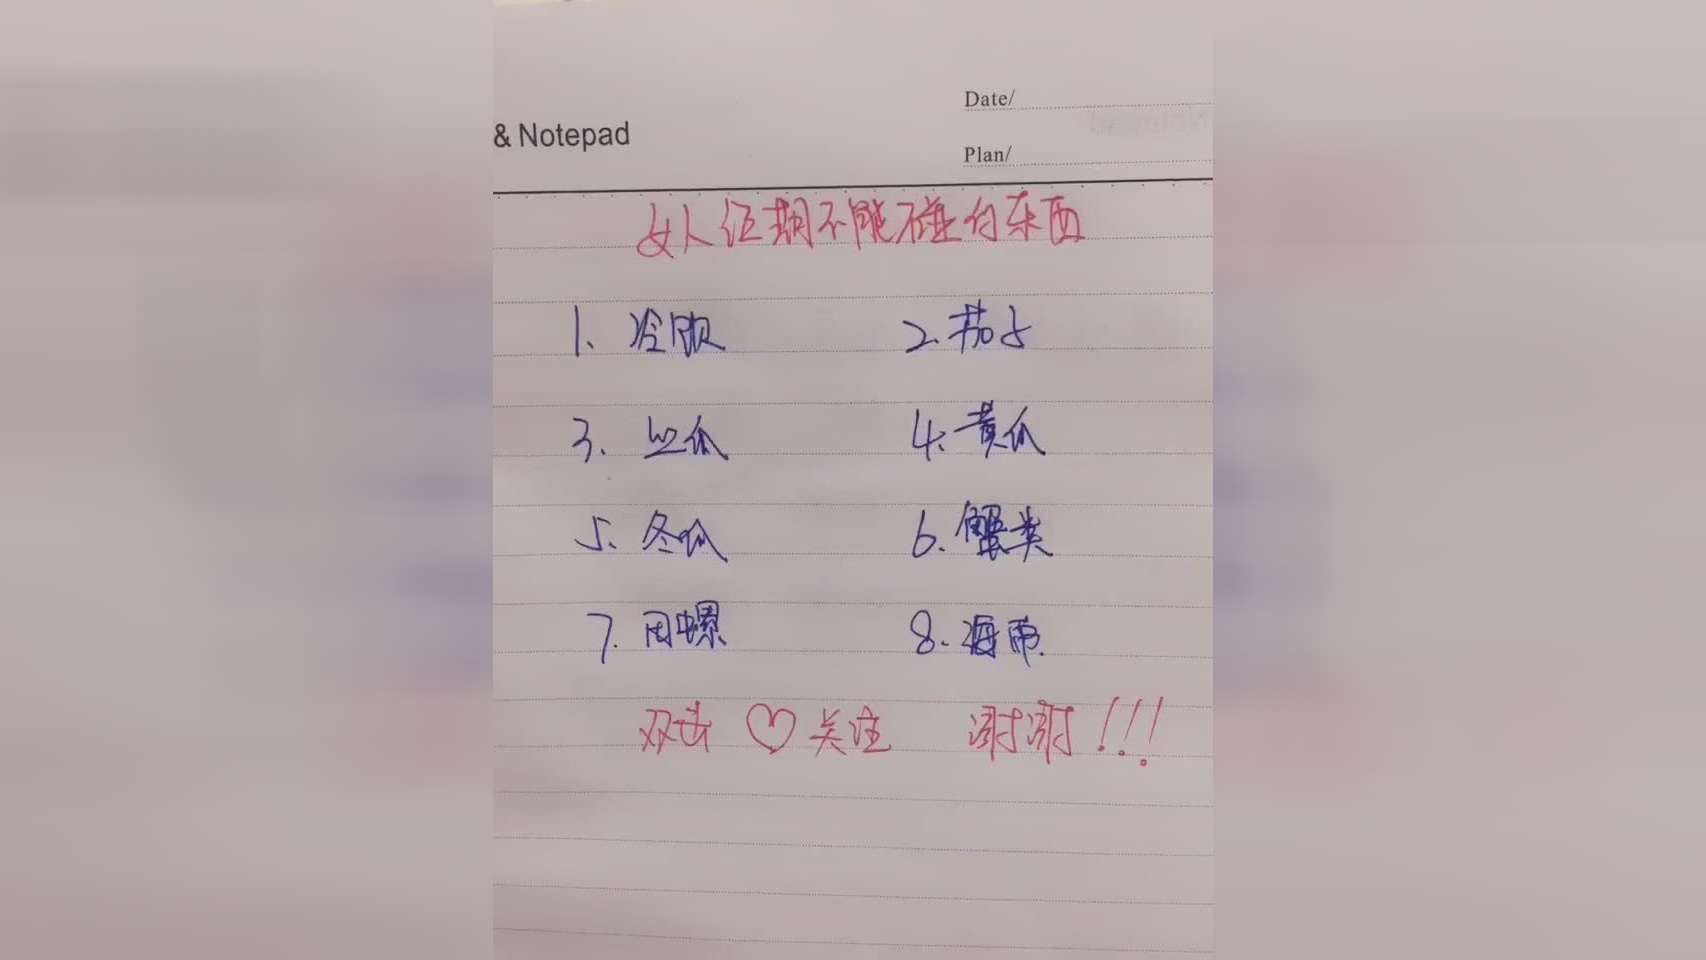 Date/
& Notepad
Plan/
女人经期不能碰的东西
1、冷饮 2.茄子
3.丝瓜 4.黄瓜
5.冬瓜 6.蟹类
7.田螺 8.海带.
双击♡关注 谢谢!!!